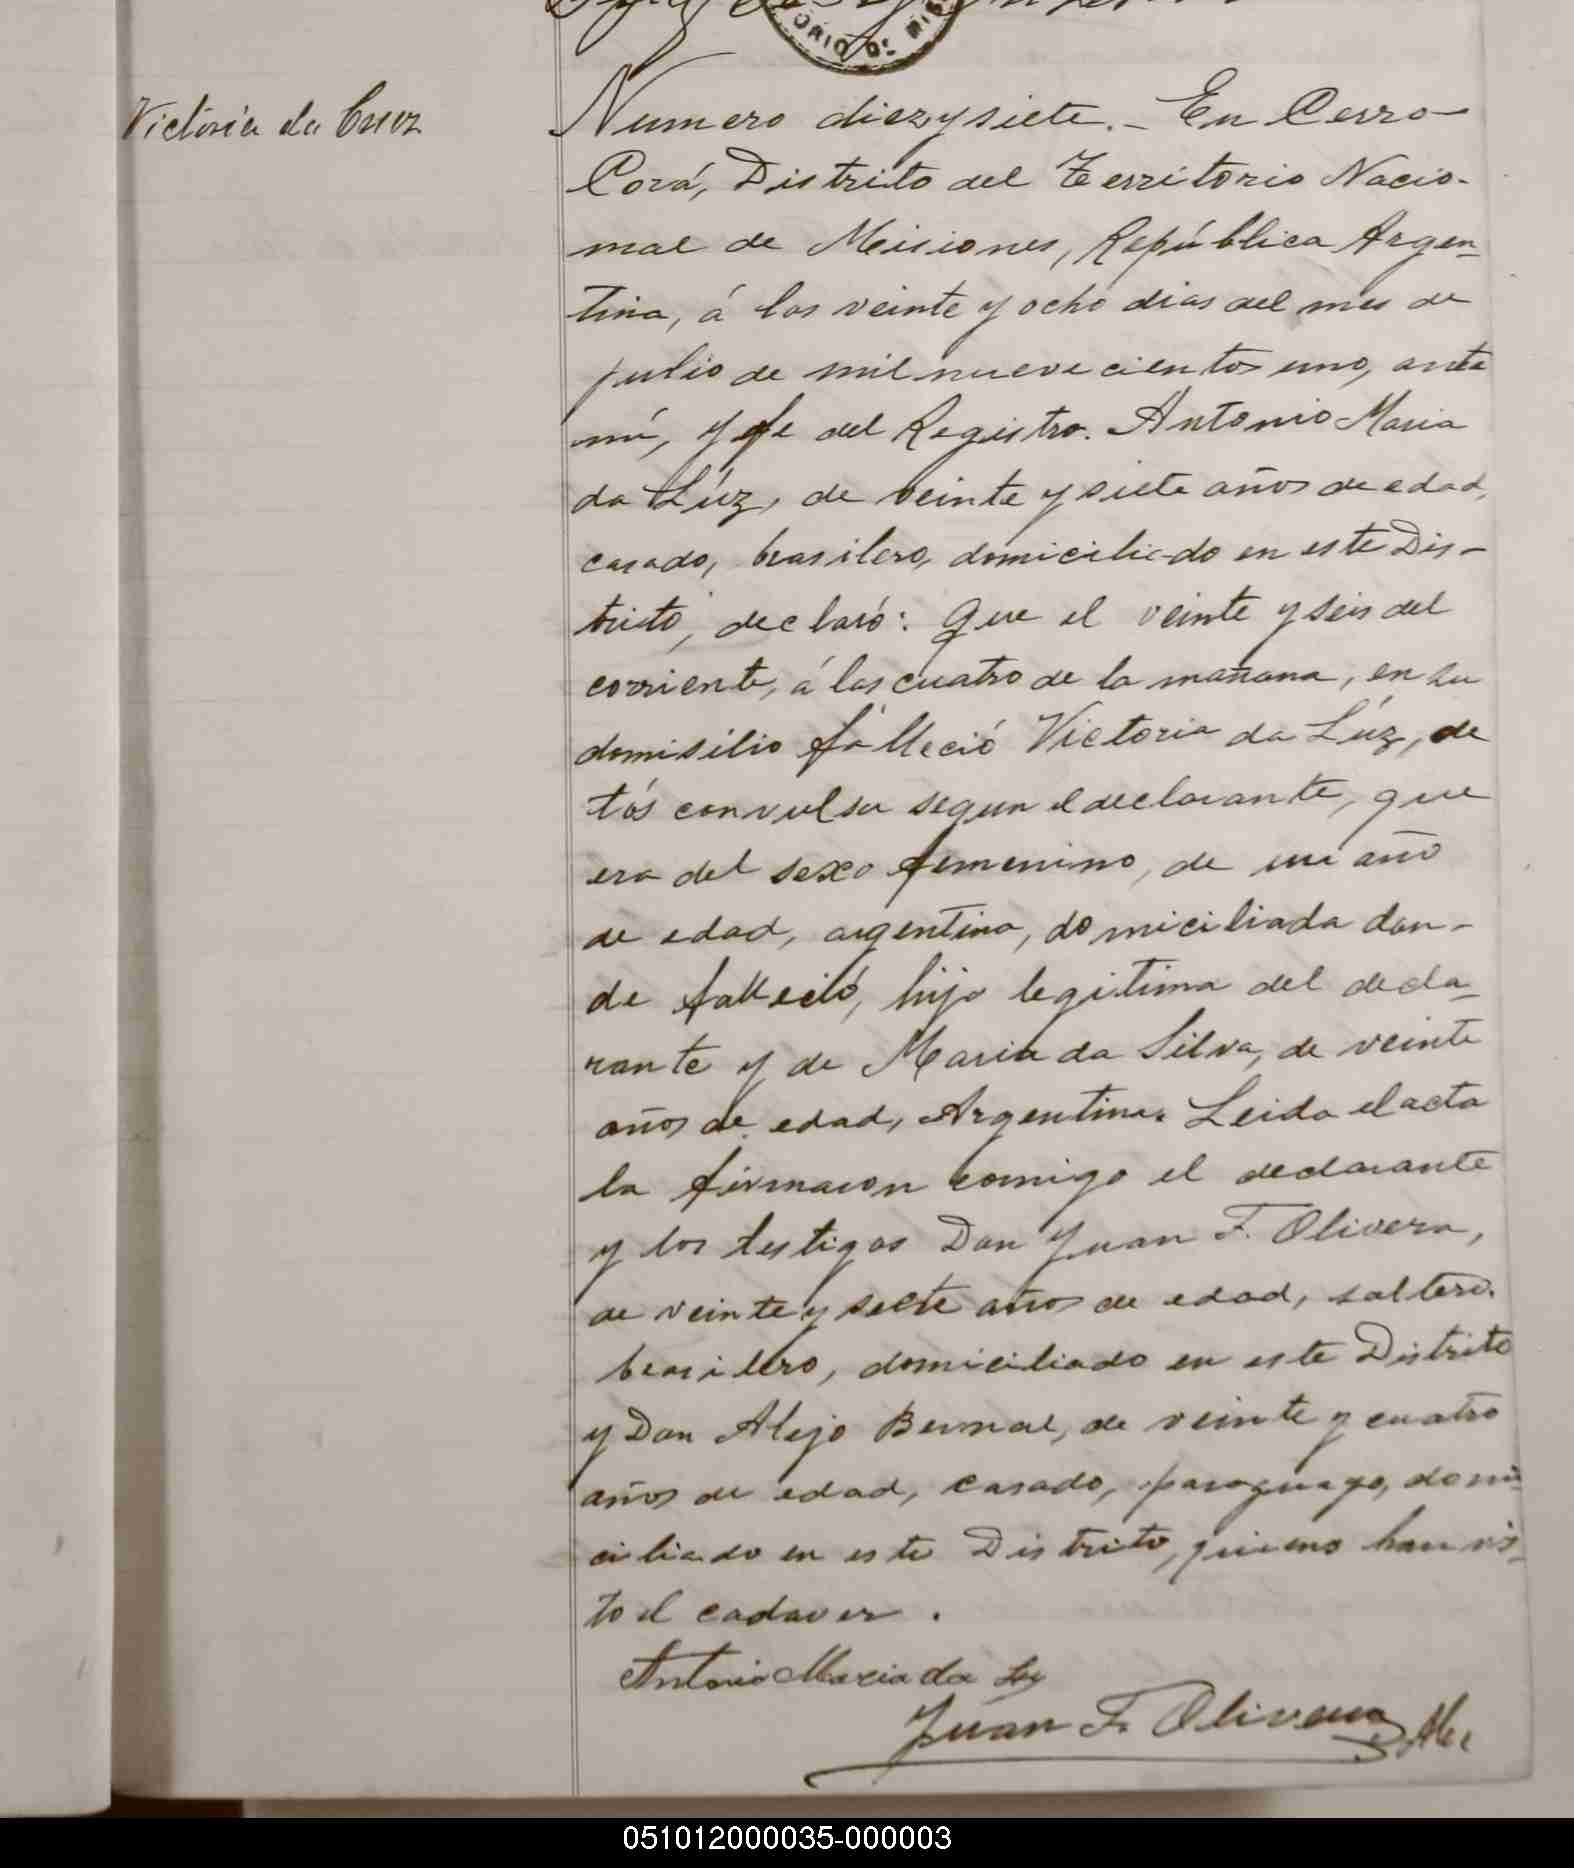 Victoria da Cruz
Numero diez y siete.- En Cerro-
Corá, Distrito del Territorio Nacio-
nal de Misiones, República Argen-
tina, á los veinte y ocho dias del mes de
julio de mil nuevecientos uno, ante
mí, y fe del Registro. Antonio Maria
da Lúz, de veinte y siete años de edad,
casado, brasilero, domiciliado en este Dis-
trito, declaró: Que el veinte y seis del
corriente, á las cuatro de la mañana, en su
domisilio falleció Victoria da Lúz, de
tós convulsa segun el declarante, que
era del sexo femenino, de un año
de edad, argentina, domiciliada don-
de falleció, hija legitima del decla-
rante y de Maria da Silva, de veinte
años de edad, Argentina. Leida el acta
la firmaron comigo el declarante
y los testigos Don Juan F. Olivera,
de veinte y siete años de edad, soltero,
brasilero, domiciliado en este Distrito
y Don Alejo Bernal, de veinte y cuatro
años de edad, casado, paraguayo, domi-
ciliado en este Distrito, quienes han vis-
to el cadaver.
Antonio Maria da Luz
Juan F. Olivera
051012000035-000003